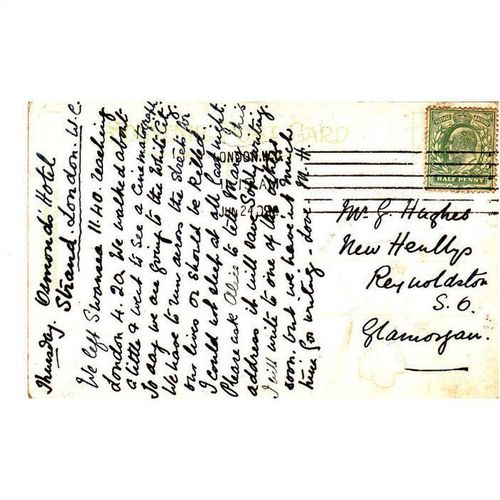 Thursday. Osmond's Hotel
Strand London W.C.
We left Swansea 11.40 reaching
London 4.20. We walked about
a little & went to see a Cinematograph
To day we are going to the White City.
We have to run across the streets for
our lives or should be killed
I could not sleep at all last night.
Please ask Alice to tell Mam this
address it will save Sophy writing.
I will write to one of the others
soon, but we haven't much
time for writing - love M. H.
POST CARD
LONDON. W.C.
11.15 AM
24 09
POSTAGE REVENUE
HALF PENNY
Mr G. Hughes
New Henllys
Reynoldston
S. O.
Glamorgan.